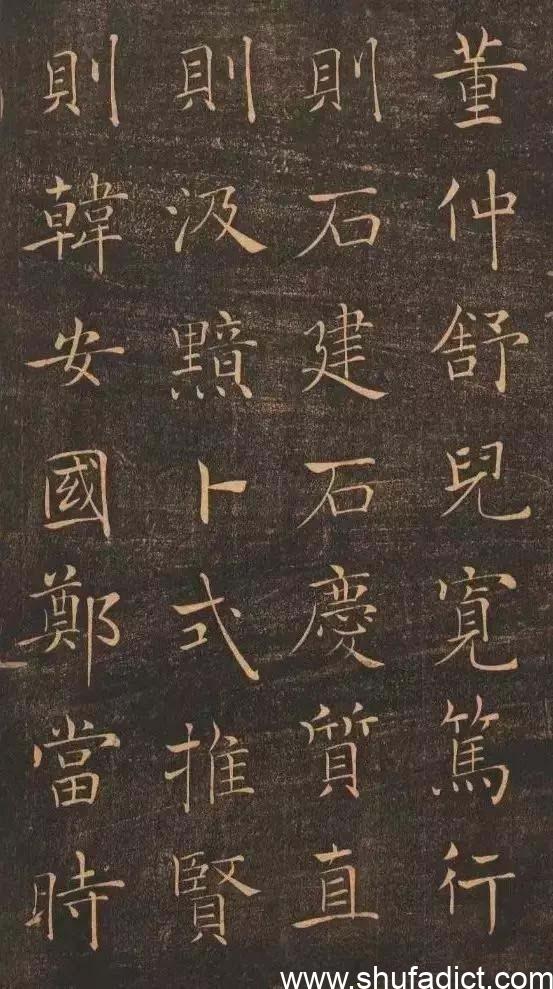 董仲舒兒寬篤行
則石建石慶質直
則汲黯卜式推賢
則韓安國鄭當時
www.shufadict.com